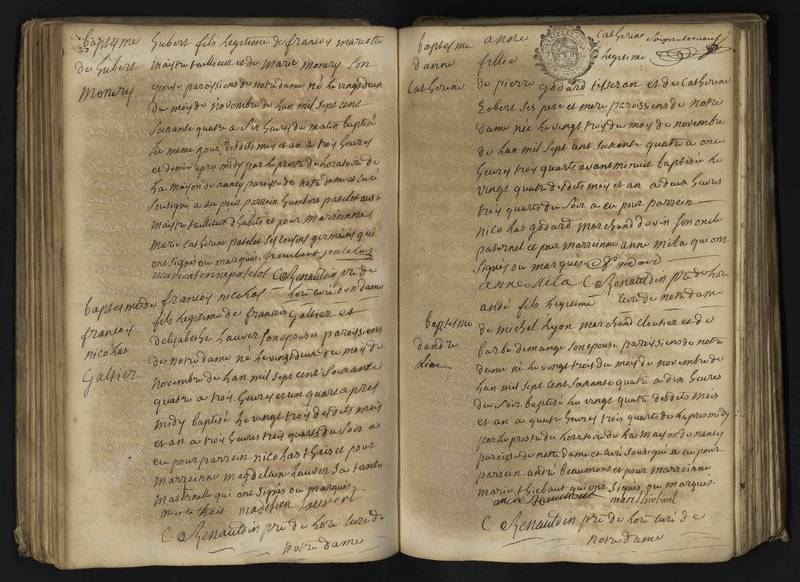 baptesme
de hubert
monery
hubert fils legitime de francois mariotte
maistre tailleur et de marie monery son
epouse paroissiens de notre dame né le vingt deux
du mois de novembre de lan mil sept cent
soixante quatre a six heures du matin baptisé
le meme jour desdets mois et an a trois heures
et demie apres midy par le prestre de loratoire de
la maison de nancy paroisse de notre dame et curé
soussigné a eu pour parrein humbert patelot aussi
maistre tailleur dhabits et pour marreinne
marie catherine patelot ses cousins germains qui
ont signés ou marqués humbert patelot
marie catherine patelot C Renauldin ptre de
lore curé de n dame
baptesme de
francois
nicolas
Galtier
francois nicolas
fils legitime de francois Galtier et
delisabethe hauver son epouse paroissiens
de notre dame né le vingt deux du mois de
novembre de lan mil sept cent soixante
quatre a trois heures et un quart apres
midy baptisé le vingt trois desdets mois
et an a trois heures trois quarts du soir a
eu pour parrein nicolas theis et pour
marreinne magdelaine hauver sa tante
maternelle qui ont signés ou marqués
nicolas theis madlen hauvert
C Renauldin ptre de lore curé de
notre dame
baptesme
danne
catherine
anne catherine
fille legitime
de pierre godard tisseran et de catherine
robert ses pere et mere paroissiens de notre
dame née le vingt trois du mois de novembre
de lan mil sept cent soixante quatre a onze
heures trois quarts avant minuit baptisée le
vingt quatre desdets mois et an a deux heures
trois quarts du soir a eu pour parrein
nicolas godard marchand de vin son oncle
paternel et pour marreinne anne mila qui ont
signés ou marqués godard
anne mila C Renauldin ptre de lore
curé de notre dame
baptesme
dandré
Lion
andré fils legitime
de michel lyon marchand cloutier et de
barbe demange son epouse paroissiens de notre
dame né le vingt trois du mois de novembre de
lan mil sept cent soixante quatre a dix heures
du soir baptisé le vingt quatre desdets mois
et an a quatre heures trois quarts de lapres midy
par le prestre de loratoire de la maison de nancy
paroisse de notre dame et curé soussigné a eu pour
parrein andré beaumont et pour marreinne
marie thiebaut qui ont signés ou marqués
andré beaumont marie thiebaut
C Renauldin ptre de lore curé de
notre dame